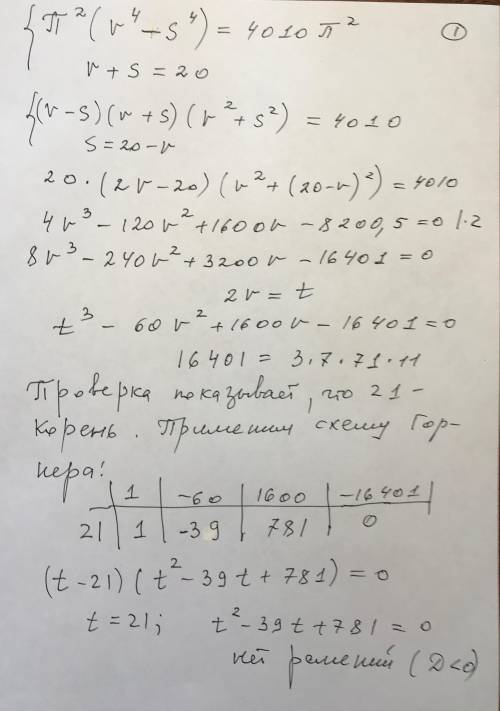 ①
{ π²(r⁴ - s⁴) = 4010 π²
r + s = 20
{ (r-s)(r+s)(r²+s²) = 4010
s = 20 - r
20·(2r-20)(r²+(20-r)²) = 4010
4r³ - 120r² + 1600r - 8200,5 = 0 |·2
8r³ - 240r² + 3200r - 16401 = 0
2r = t
t³ - 60r² + 1600r - 16401 = 0
16401 = 3·7·71·11
Проверка показывает, что 21 -
корень. Применим схему Гор-
нера!
| 1 | -60 | 1600 | -16401
21 | 1 | -39 | 781 | 0
(t-21)(t² - 39t + 781) = 0
t = 21; t² - 39t + 781 = 0
нет решений (D<0)